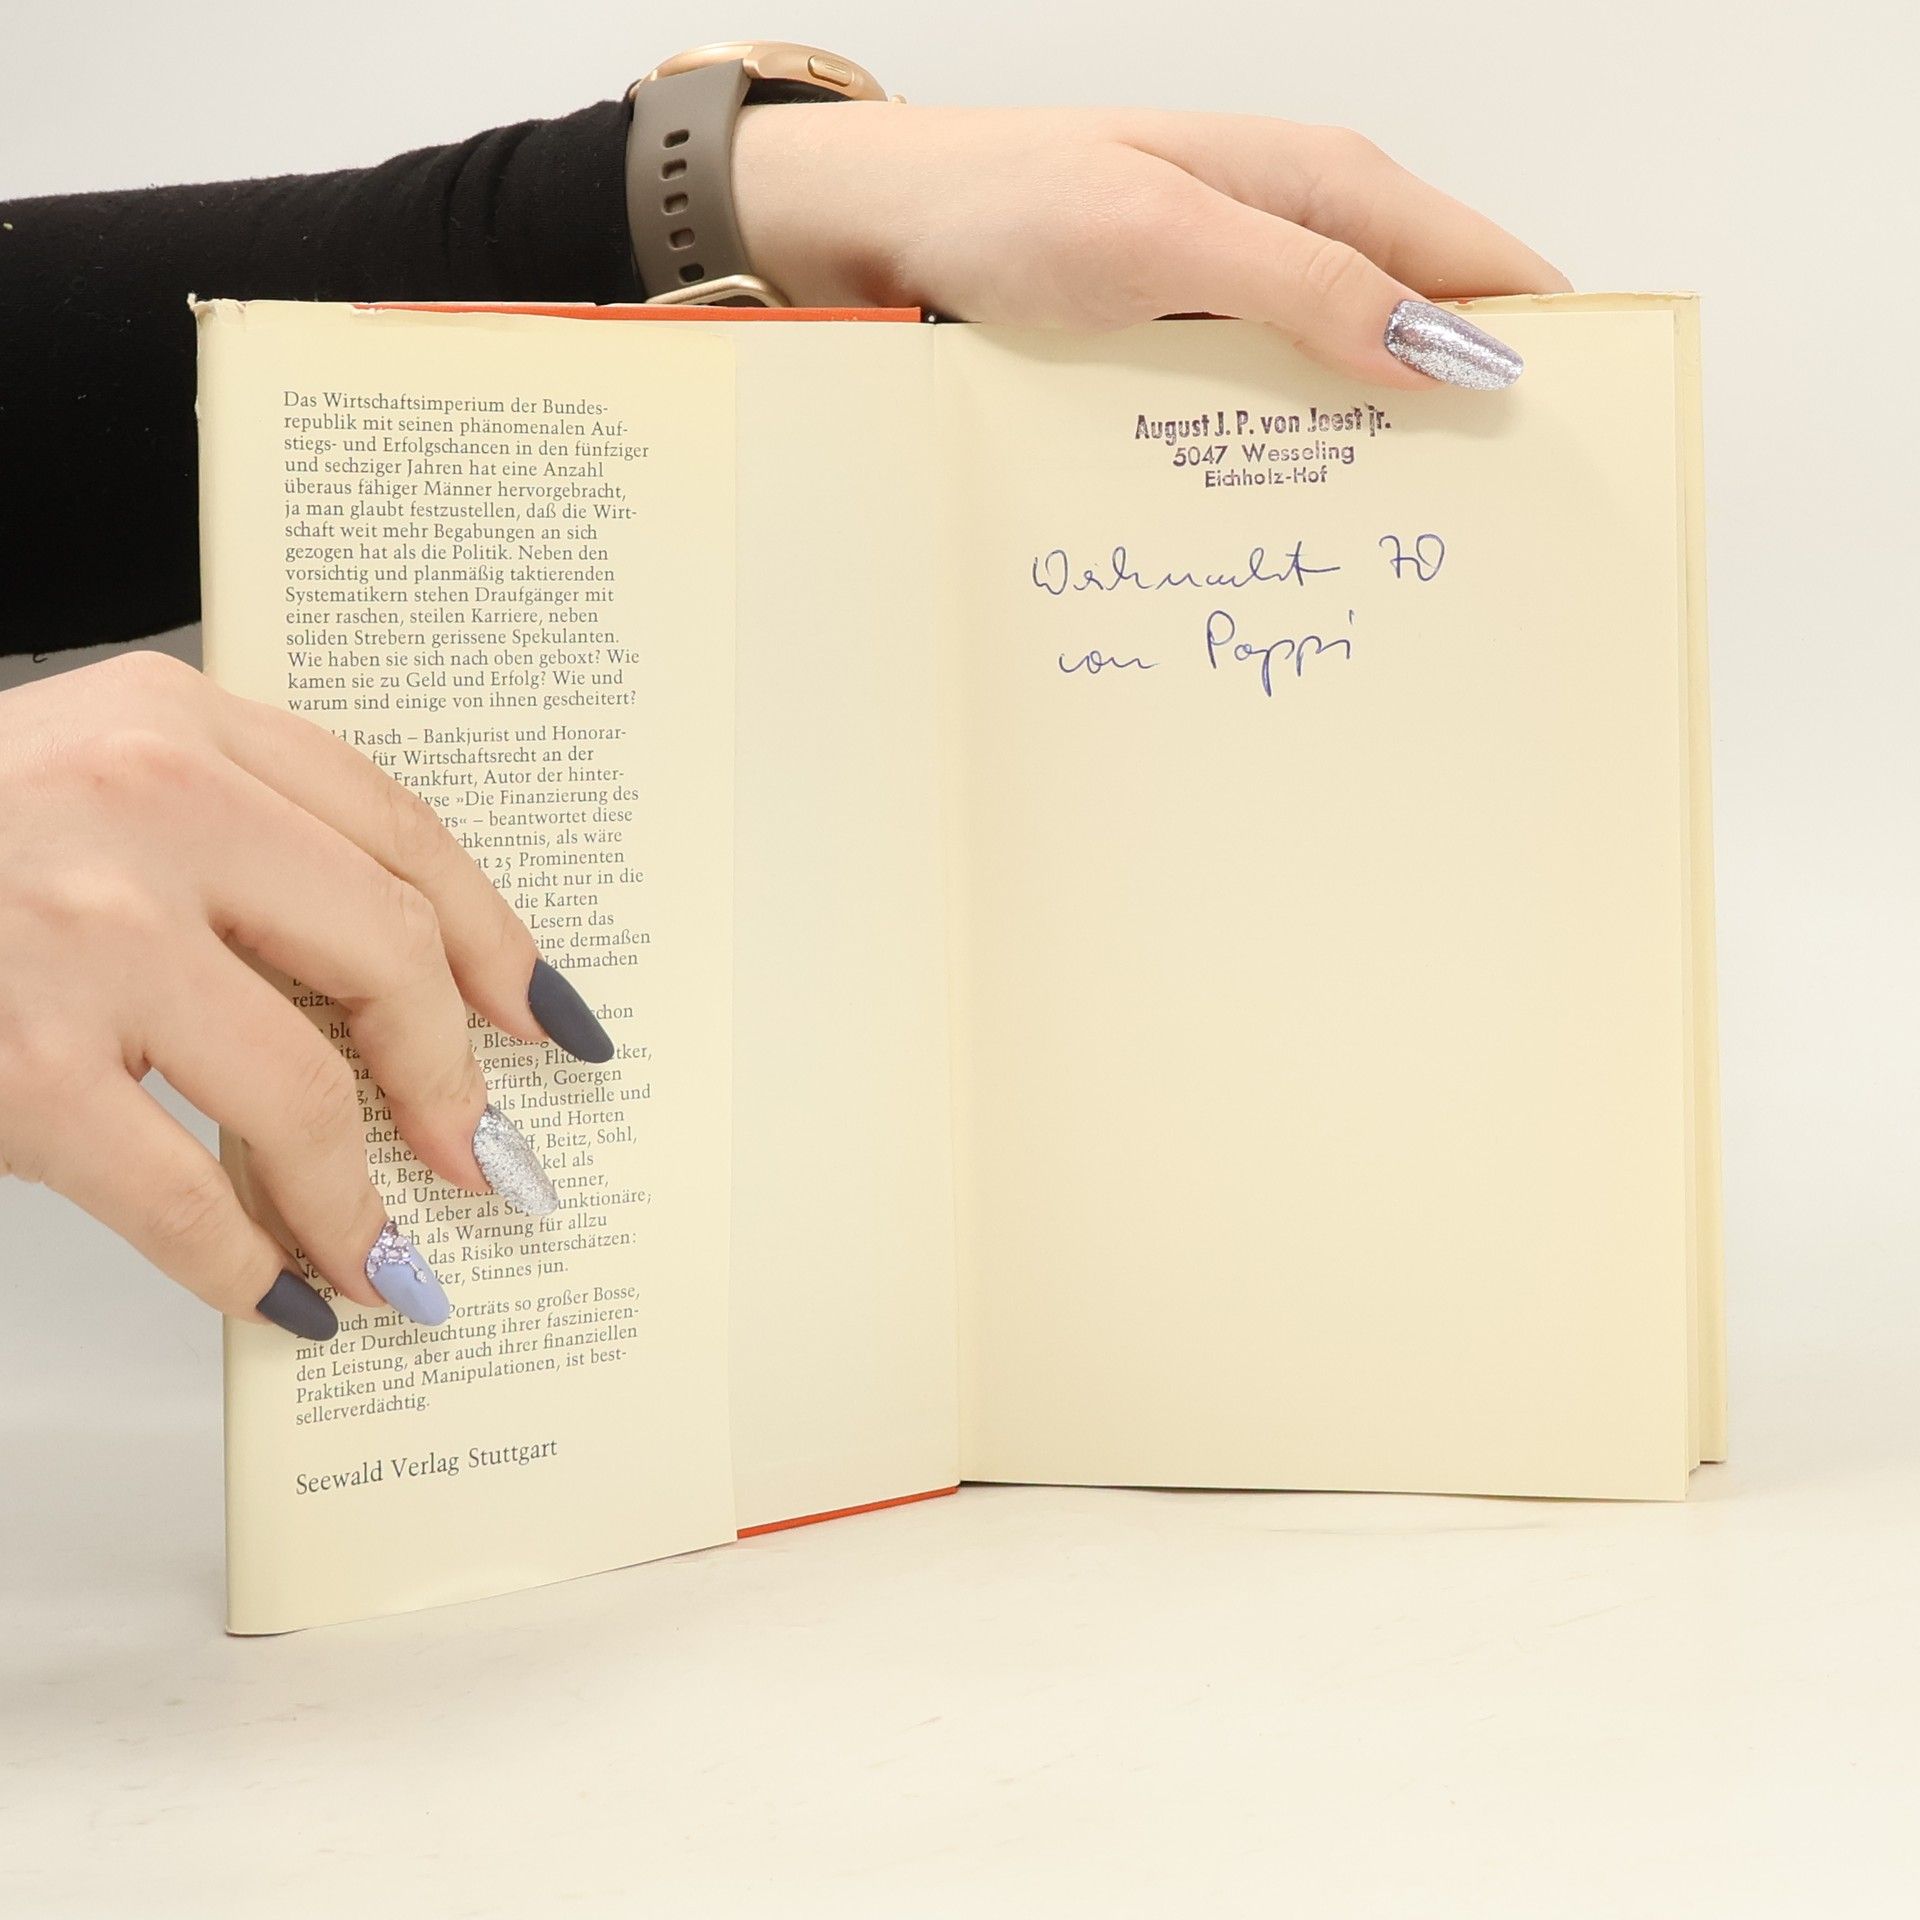 Das Wirtschaftsimperium der Bundes-
republik mit seinen phänomenalen Auf-
stiegs- und Erfolgschancen in den fünfziger
und sechziger Jahren hat eine Anzahl
überaus fähiger Männer hervorgebracht,
ja man glaubt festzustellen, daß die Wirt-
schaft weit mehr Begabungen an sich
gezogen hat als die Politik. Neben den
vorsichtig und planmäßig taktierenden
Systematikern stehen Draufgänger mit
einer raschen, steilen Karriere, neben
soliden Strebern gerissene Spekulanten.
Wie haben sie sich nach oben geboxt? Wie
kamen sie zu Geld und Erfolg? Wie und
warum sind einige von ihnen gescheitert?
Rasch – Bankjurist und Honorar-
für Wirtschaftsrecht an der
Frankfurt, Autor der hinter-
»Die Finanzierung des
– beantwortet diese
als wäre
25 Prominenten
nicht nur in die
die Karten
Lesern das
dermaßen
Nachmachen
reizt.
schon
Flick,
Goergen
als Industrielle und
und Horten
Beitz, Sohl,
als
Berg
und
und Leber als
als Warnung für allzu
das Risiko unterschätzen:
Stinnes jun.
mit Porträts so großer Bosse,
mit der Durchleuchtung ihrer faszinieren-
den Leistung, aber auch ihrer finanziellen
Praktiken und Manipulationen, ist best-
sellerverdächtig.
Seewald Verlag Stuttgart
August J. P. von Joest jr.
5047 Wesseling
Eichholz-Hof
Weihnacht 70
von Pappi